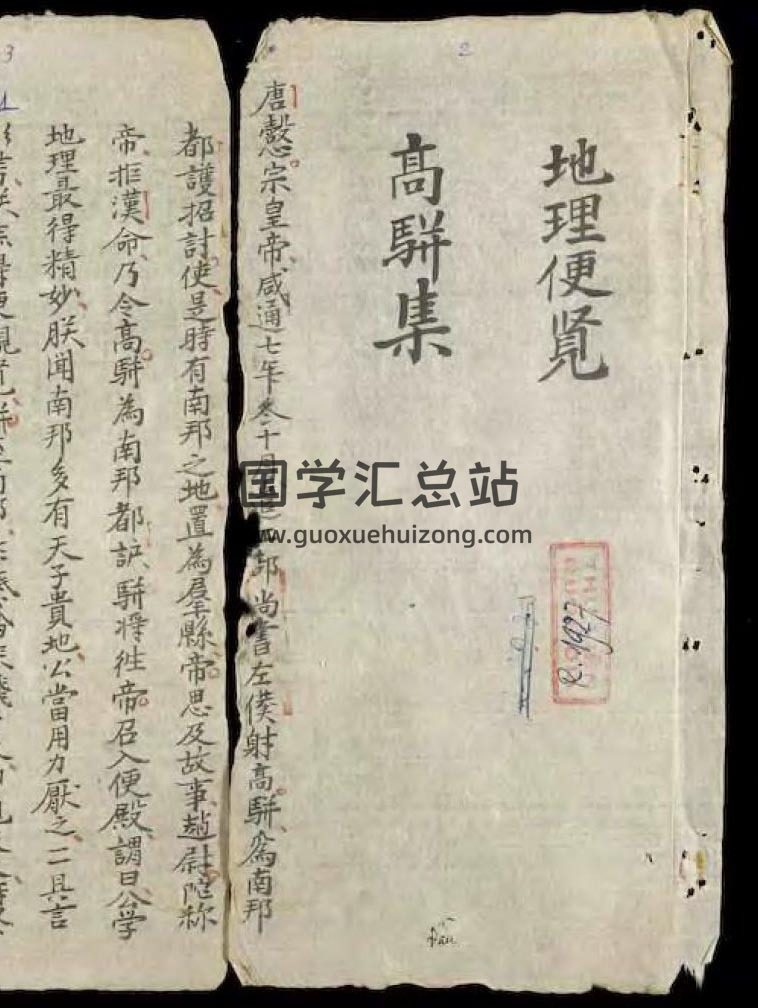 2
地理便覧
高駢集
R.1927
Đầu
唐懿宗皇帝咸通七年冬十月
部尚書左僕射高駢爲南邦
都護招討使是時有南邦之地置為郡縣帝思及故事趙尉陀称
帝拒漢命乃令高駢為南邦都護駢將徃帝召入便殿謂曰公学
地理最得精妙朕聞南邦多有天子貴地公當用力厭之一二具言
3
国学汇总站
www.guoxuehuizong.com